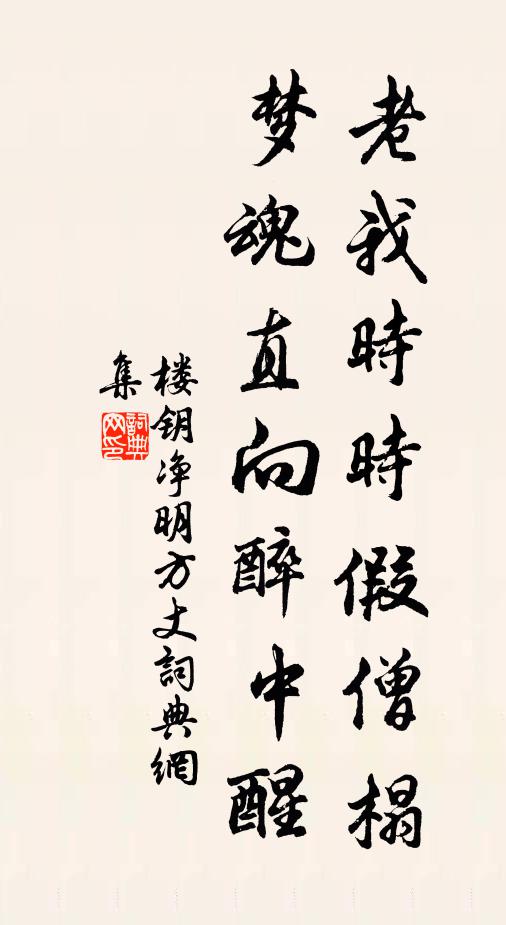 老我時時假僧榻
梦魂直向醉中醒
楼钥净明方丈詞典網
集
詞典網印